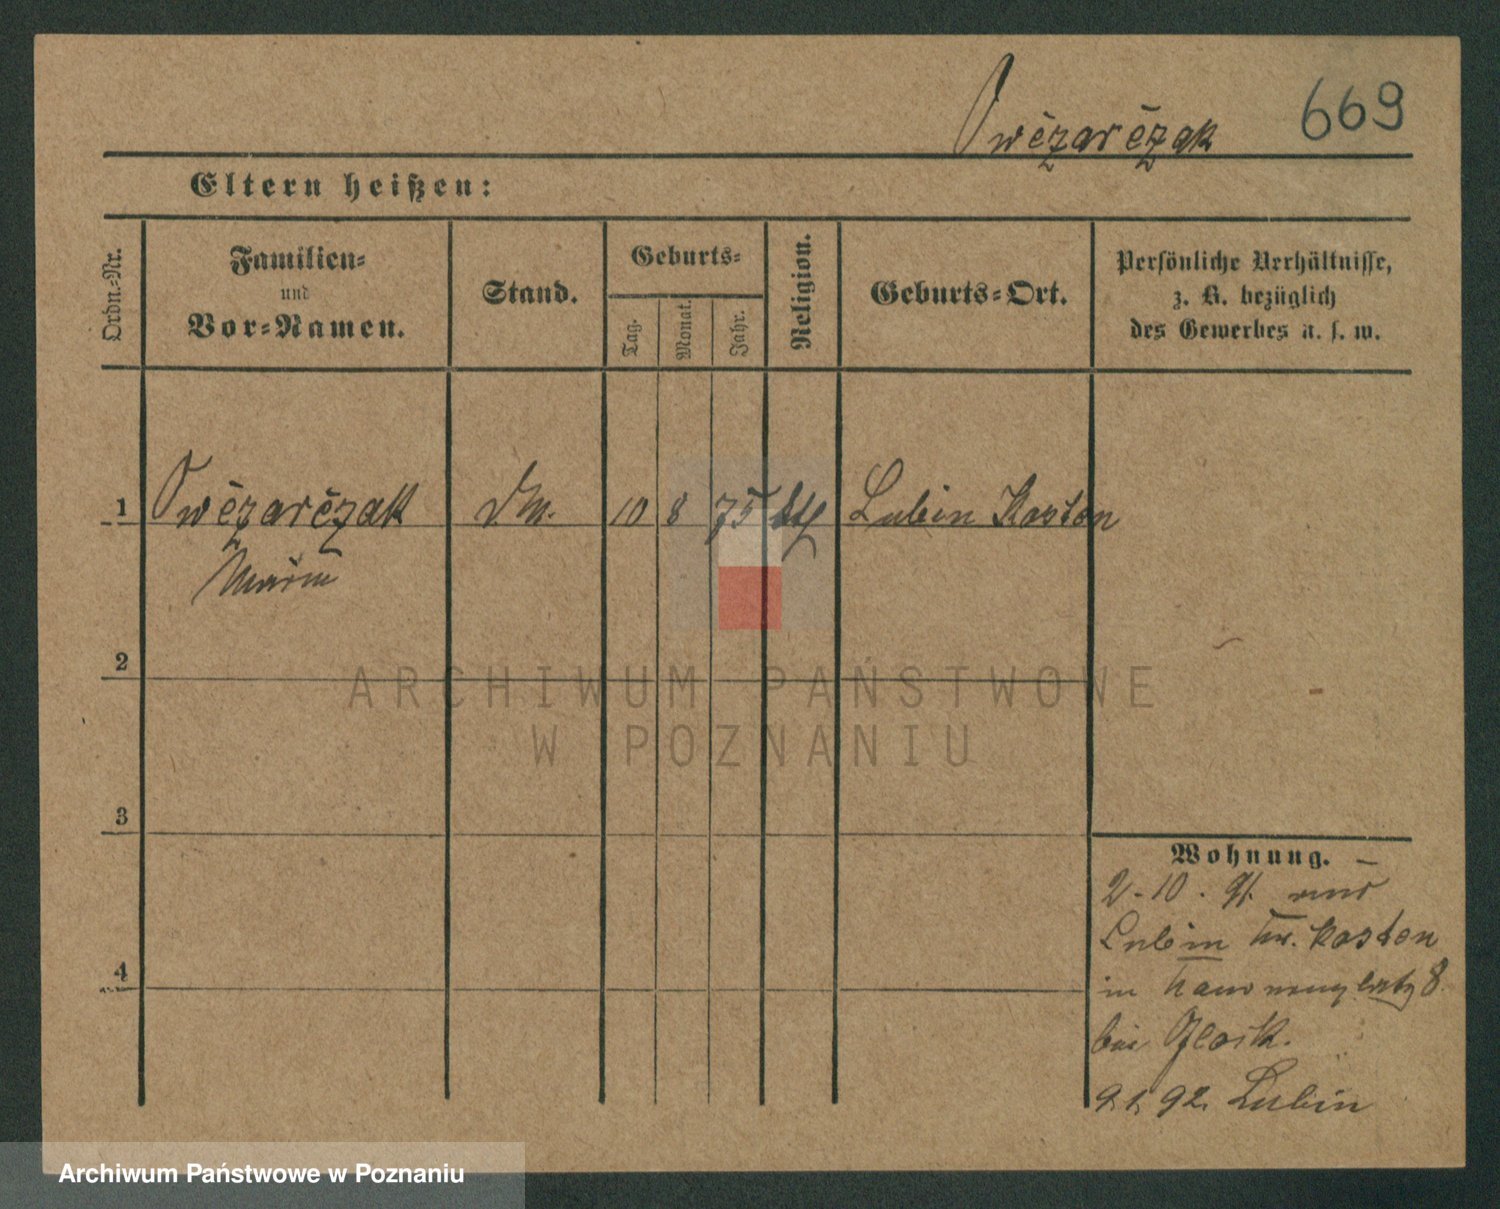 Owczarczak 669
Eltern heißen:
Ordn.-Nr.
Familien-
und
Vor-Namen.
Stand.
Geburts-
Tag.
Monat.
Jahr.
Religion.
Geburts-Ort.
Persönliche Verhältnisse,
z. B. bezüglich
des Gewerbes u. s. w.
1 Owczarczak 10 8 75 kth Lubin Kosten
Maria
2
ARCHIWUM PAŃSTWOWE
W POZNANIU
3
Wohnung.
2-10.91. aus
Lubin Kr. Kosten
in 8
4
bei
9.1.92. Lubin
Archiwum Państwowe w Poznaniu